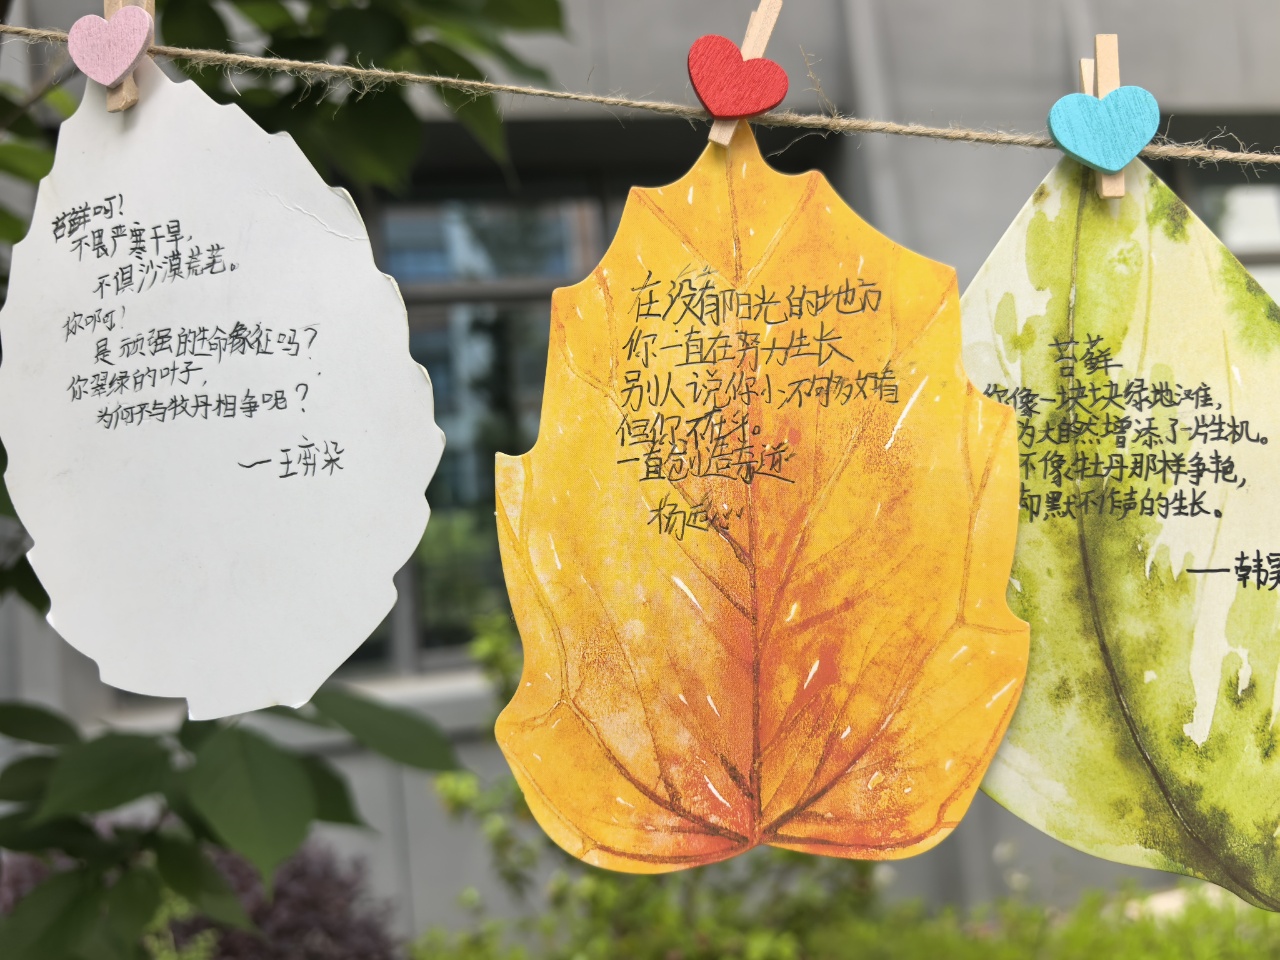 苔藓呵!
不畏严寒干旱,
不惧沙漠荒芜。
你啊!
是顽强的生命象征吗?
你翠绿的叶子,
为何不与牧丹相争呢?
一王弈朵
在没有阳光的地方
你一直在努力生长
别人说你小,不够放眼
但你不在乎。
一直创造奇迹
杨
苔藓
你像一块块绿地滩,
为大自然增添了一片生机。
不像牡丹那样争艳,
却默不作声的生长。
一韩